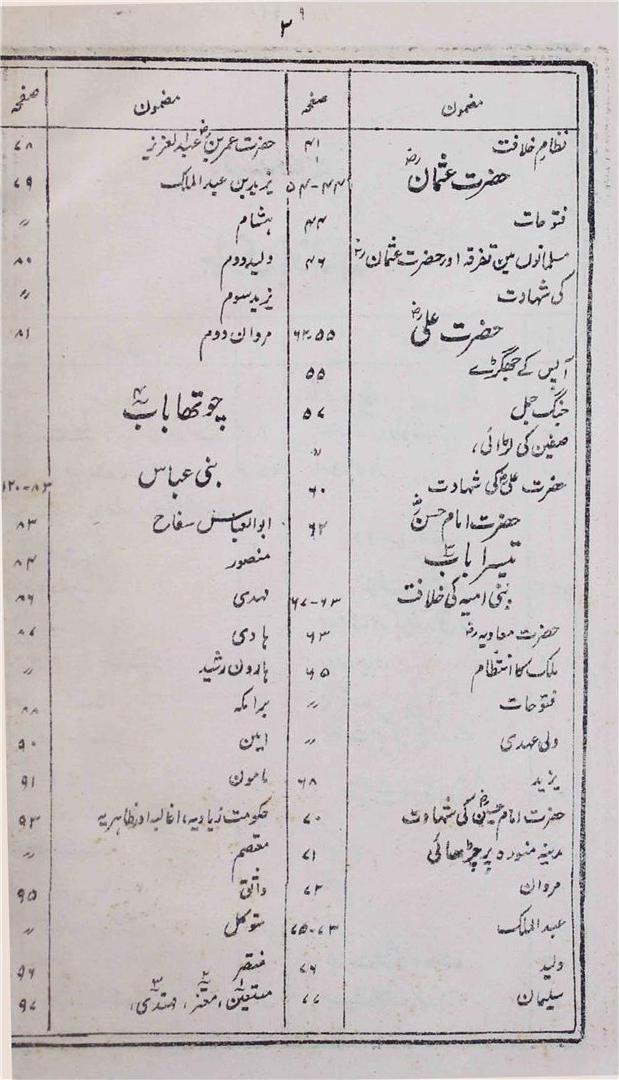 ۲
مضمون صفحہ
نظامِ خلافت ۴۱
حضرت عثمانؓ ۴۴-۵۴
فتوحات ۴۴
مسلمانوں مین تفرقہ اور حضرت عثمانؓ ۴۶
کی شہادت
حضرت علیؓ ۵۵-۶۲
آپس کے جھگڑے ۵۵
جنگ جمل ۵۷
صفین کی لڑائی، 〃
حضرت علیؓ کی شہادت ۶۰
حضرت امام حسنؓ ۶۲
تیسرا باب ۳
بنی امیہ کی خلافت ۶۳-
حضرت معاویہؓ ۶۳
ملک کا انتظام ۶۵
فتوحات 〃
ولی عہدی 〃
یزید ۶۸
حضرت امام حسینؓ کی شہادت ۷۰
مدینہ منورہ پر چڑھائی ۷۱
مروان ۷۲
عبدالملک ۷۳-۷۵
ولید ۷۶
سلیمان ۷۷
مضمون صفحہ
حضرت عمر بن عبدالعزیزؓ ۷۸
یزید بن عبدالملک ۷۹
ہشام 〃
ولید دوم ۸۰
یزید سوم 〃
مروان دوم ۸۱
چوتھا باب ۴
بنی عباس ۸۳-۱۲۰
ابوالعباس سفاح ۸۳
منصور ۸۴
مہدی ۸۶
ہادی ۸۷
ہارون رشید 〃
برامکہ ۸۸
امین ۹۰
مامون ۹۱
حکومت زیادیہ، اغالبہ اور طاہریہ ۹۳
معتصم 〃
واثق ۹۵
متوکل 〃
منتصر ۹۶
مستعین۱، معتز۲، مہتدی۳، ۹۷